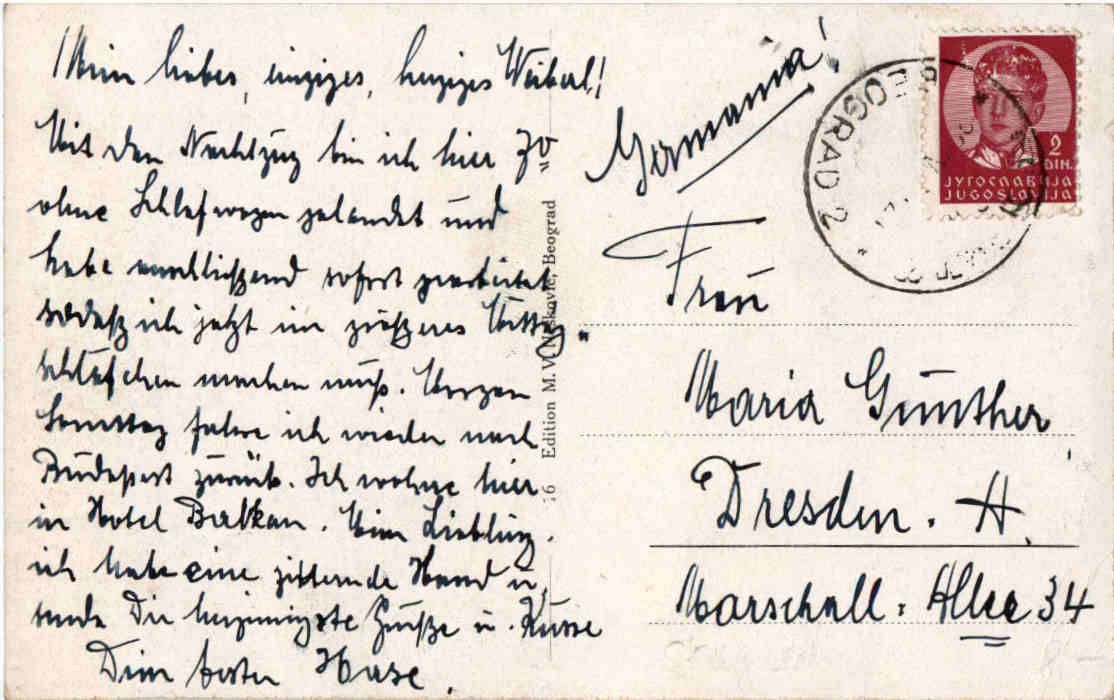 Mein liebes, einziges, herziges Weiberl!
Mit dem Nachtzug bin ich hier 7°°
ohne Schlafwagen gelandet und
habe anschließend sofort gearbeitet
sodaß ich jetzt ein größeres Mittag-
schläfchen machen muß. Morgen
Samstag fahre ich wieder nach
Budapest zurück. Ich wohne hier
im Hotel Balkan. Mein Liebling,
ich habe eine zitternde Hand u.
sende Dir herzinnigste Grüße u. Küsse
Dein bester Hase.
16 Edition M. V. Beograd
Germania!
Frau
Maria Günther
Dresden. A.
Marschall-Allee 34
BEOGRAD 2
2
DIN.
ЈУГОСЛАВИЈА
JUGOSLAVIJA